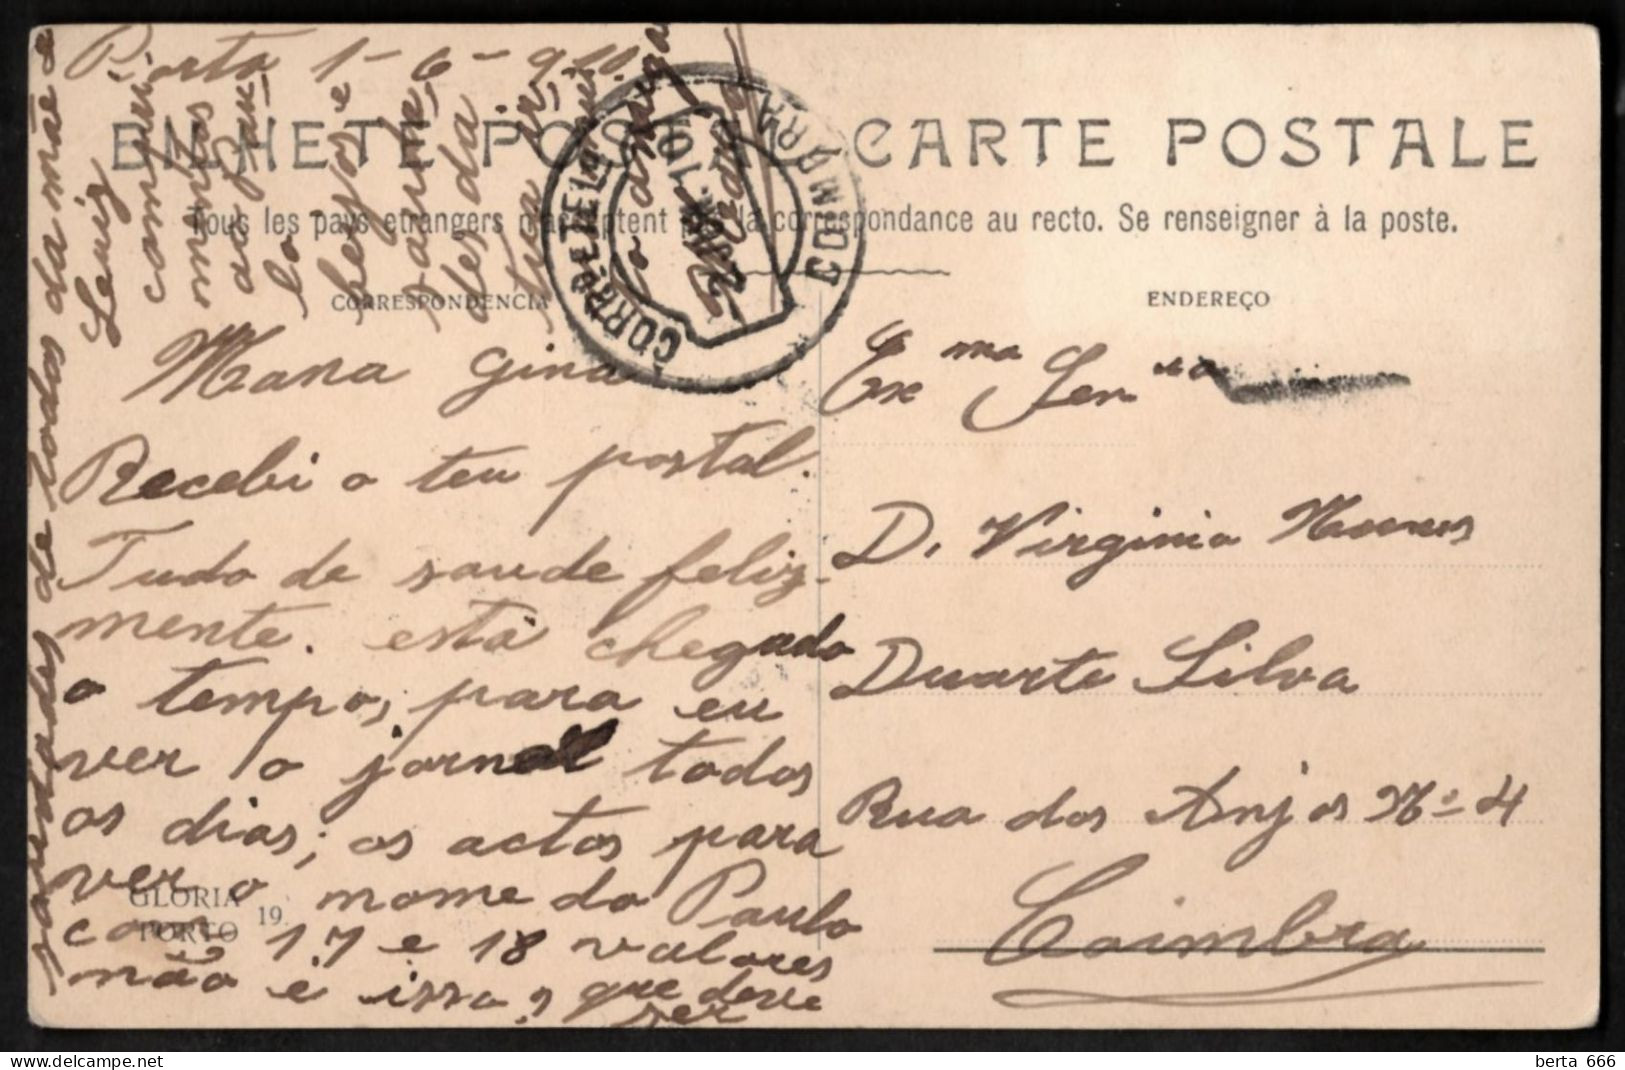 Porto 1-6-910
BILHETE POSTAL CARTE POSTALE
Tous les pays etrangers n'acceptent pas la correspondance au recto. Se renseigner à la poste.
CORRESPONDENCIA
ENDEREÇO
CORRº E TELEGº
COIMBRA
2 JUN. 10
Mana Gina
Recebi o teu postal.
Tudo de saude feliz-
mente. está chegado
o tempo, para eu
ver o jornal todos
os dias; os actos para
ver o nome do Paulo
com 17 e 18 valores
não é isso? que deve
ser
GLORIA
PORTO 19
Exma Senrta
D. Virginia Nunes
Duarte Silva
Rua dos Anjos Nº 4
Coimbra
Luiz
compri
mentos
ao Pau
lo
beijos e
saudes
des da
tua
da mãe e